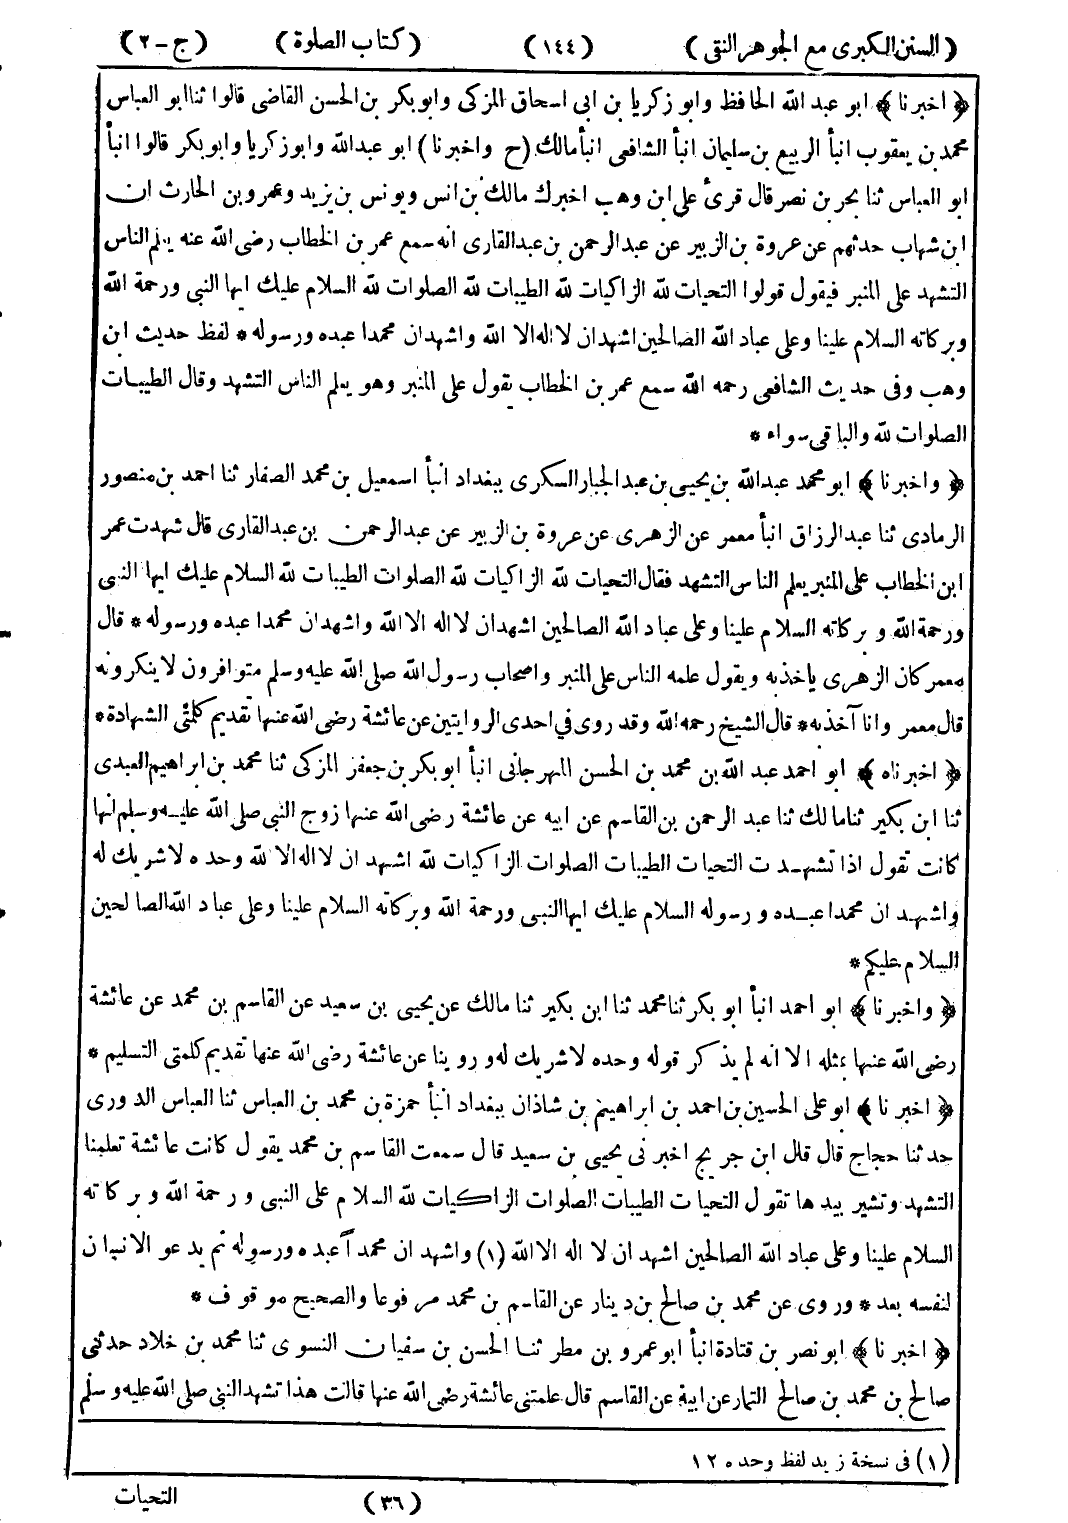 (السنن الكبرى مع الجوهر النقى) (١٤٤) (كتاب الصلوة) (ج-٢)
﴿ اخبرنا ﴾ ابو عبد الله الحافظ وابو زكريا بن ابى اسحاق المزكى وابوبكر بن الحسن القاضى قالوا ثنا ابو العباس
محمد بن يعقوب انبأ الربيع بن سليمان انبأ الشافعى انبأ مالك (ح واخبرنا) ابو عبدالله وابوزكريا وابوبكر قالوا انبأ
ابو العباس ثنا بحر بن نصر قال قرئ على ابن وهب اخبرك مالك بن انس ويونس بن يزيد وعمرو بن الحارث ان
ابن شهاب حدثهم عن عروة بن الزبير عن عبدالرحمن بن عبدالقارى انه سمع عمر بن الخطاب رضى الله عنه يعلم الناس
التشهد على المنبر فيقول قولوا التحيات لله الزاكيات لله الطيبات لله الصلوات لله السلام عليك ايها النبى ورحمة الله
وبركاته السلام علينا وعلى عباد الله الصالحين اشهد ان لا اله الا الله واشهد ان محمدا عبده ورسوله * لفظ حديث ابن
وهب وفى حديث الشافعى رحمه الله سمع عمر بن الخطاب يقول على المنبر وهو يعلم الناس التشهد وقال الطيبات
الصلوات لله والباقى سواء *
﴿ واخبرنا ﴾ ابو محمد عبدالله بن يحيى بن عبد الجبار السكرى ببغداد انبأ اسمعيل بن محمد الصفار ثنا احمد بن منصور
الرمادى ثنا عبد الرزاق انبأ معمر عن الزهرى عن عروة بن الزبير عن عبدالرحمن بن عبدالقارى قال شهدت عمر
ابن الخطاب على المنبر يعلم الناس التشهد فقال التحيات لله الزاكيات لله الصلوات الطيبات لله السلام عليك ايها النبى
ورحمة الله وبركاته السلام علينا وعلى عباد الله الصالحين اشهد ان لا اله الا الله واشهد ان محمدا عبده ورسوله * قال
معمر كان الزهرى يأخذبه ويقول علمه الناس على المنبر واصحاب رسول الله صلى الله عليه وسلم متوافرون لا ينكرونه
قال معمر وانا آخذبه * قال الشيخ رحمه الله وقد روى فى احدى الروايتين عن عائشة رضى الله عنها تقديم كلمتى الشهادة *
﴿ اخبرناه ﴾ ابو احمد عبد الله بن محمد بن الحسن المهرجانى انبأ ابو بكر بن جعفر المزكى ثنا محمد بن ابراهيم العبدى
ثنا ابن بكير ثنا مالك ثنا عبد الرحمن بن القاسم عن ابيه عن عائشة رضى الله عنها زوج النبى صلى الله عليه وسلم انها
كانت تقول اذا تشهدت التحيات الطيبات الصلوات الزاكيات لله اشهد ان لا اله الا الله وحده لا شريك له
واشهد ان محمدا عبده ورسوله السلام عليك ايها النبى ورحمة الله وبركاته السلام علينا وعلى عباد الله الصالحين
السلام عليكم *
﴿ واخبرنا ﴾ ابو احمد انبأ ابو بكر ثنا محمد ثنا ابن بكير ثنا مالك عن يحيى بن سعيد عن القاسم بن محمد عن عائشة
رضى الله عنها بمثله الا انه لم يذكر قوله وحده لا شريك له وروينا عن عائشة رضى الله عنها تقديم كلمتى التسليم *
﴿ اخبرنا ﴾ ابو على الحسين بن احمد بن ابراهيم بن شاذان ببغداد انبأ حمزة بن محمد بن العباس ثنا العباس الدورى
حدثنا حجاج قال قال ابن جريج اخبرنى يحيى بن سعيد قال سمعت القاسم بن محمد يقول كانت عائشة تعلمنا
التشهد وتشير بيدها تقول التحيات الطيبات الصلوات الزاكيات لله السلام على النبى ورحمة الله وبركاته
السلام علينا وعلى عباد الله الصالحين اشهد ان لا اله الا الله (١) واشهد ان محمداً عبده ورسوله ثم يدعو الانسان
لنفسه بعد * وروى عن محمد بن صالح بن دينار عن القاسم بن محمد مرفوعا والصحيح موقوف *
﴿ اخبرنا ﴾ ابو نصر بن قتادة انبأ ابو عمرو بن مطر ثنا الحسن بن سفيان النسوى ثنا محمد بن خلاد حدثنى
صالح بن محمد بن صالح التمار عن ابيه عن القاسم قال علمتنى عائشة رضى الله عنها قالت هذا تشهد النبى صلى الله عليه وسلم
(١) فى نسخة زيد لفظ وحده ١٢
(٣٦) التحيات